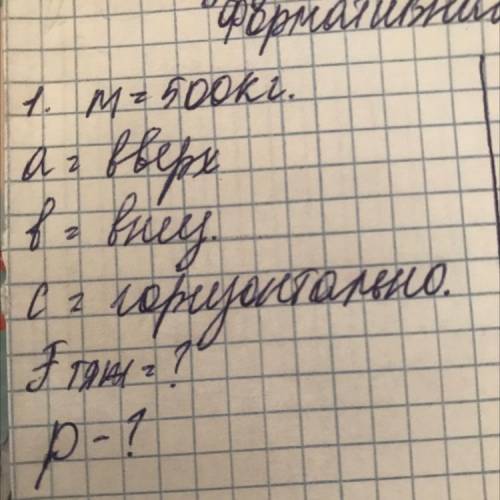 Формативный
1. m = 500кг.
a = вверх
b = вниз.
c = горизонтально.
Fтяж = ?
p - ?